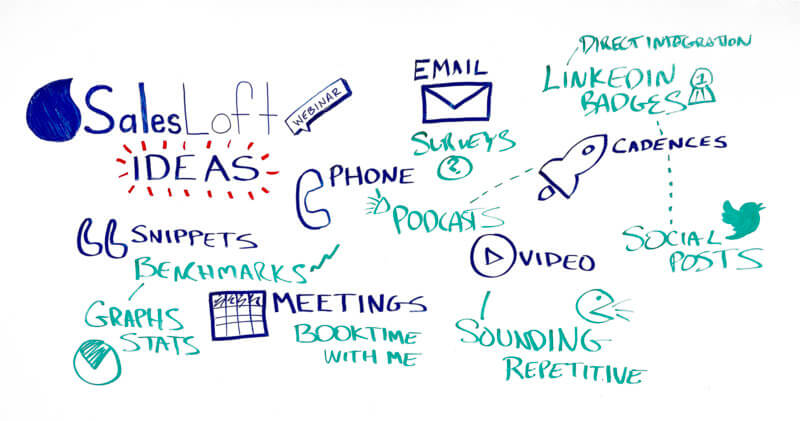 SalesLoft
WEBINAR
IDEAS
EMAIL
SURVEYS
?
DIRECT INTEGRATION
LINKEDIN
BADGES
1
PHONE
PODCASTS
CADENCES
SNIPPETS
BENCHMARKS
GRAPHS
STATS
MEETINGS
BOOKTIME
WITH ME
VIDEO
SOUNDING
REPETITIVE
SOCIAL
POSTS